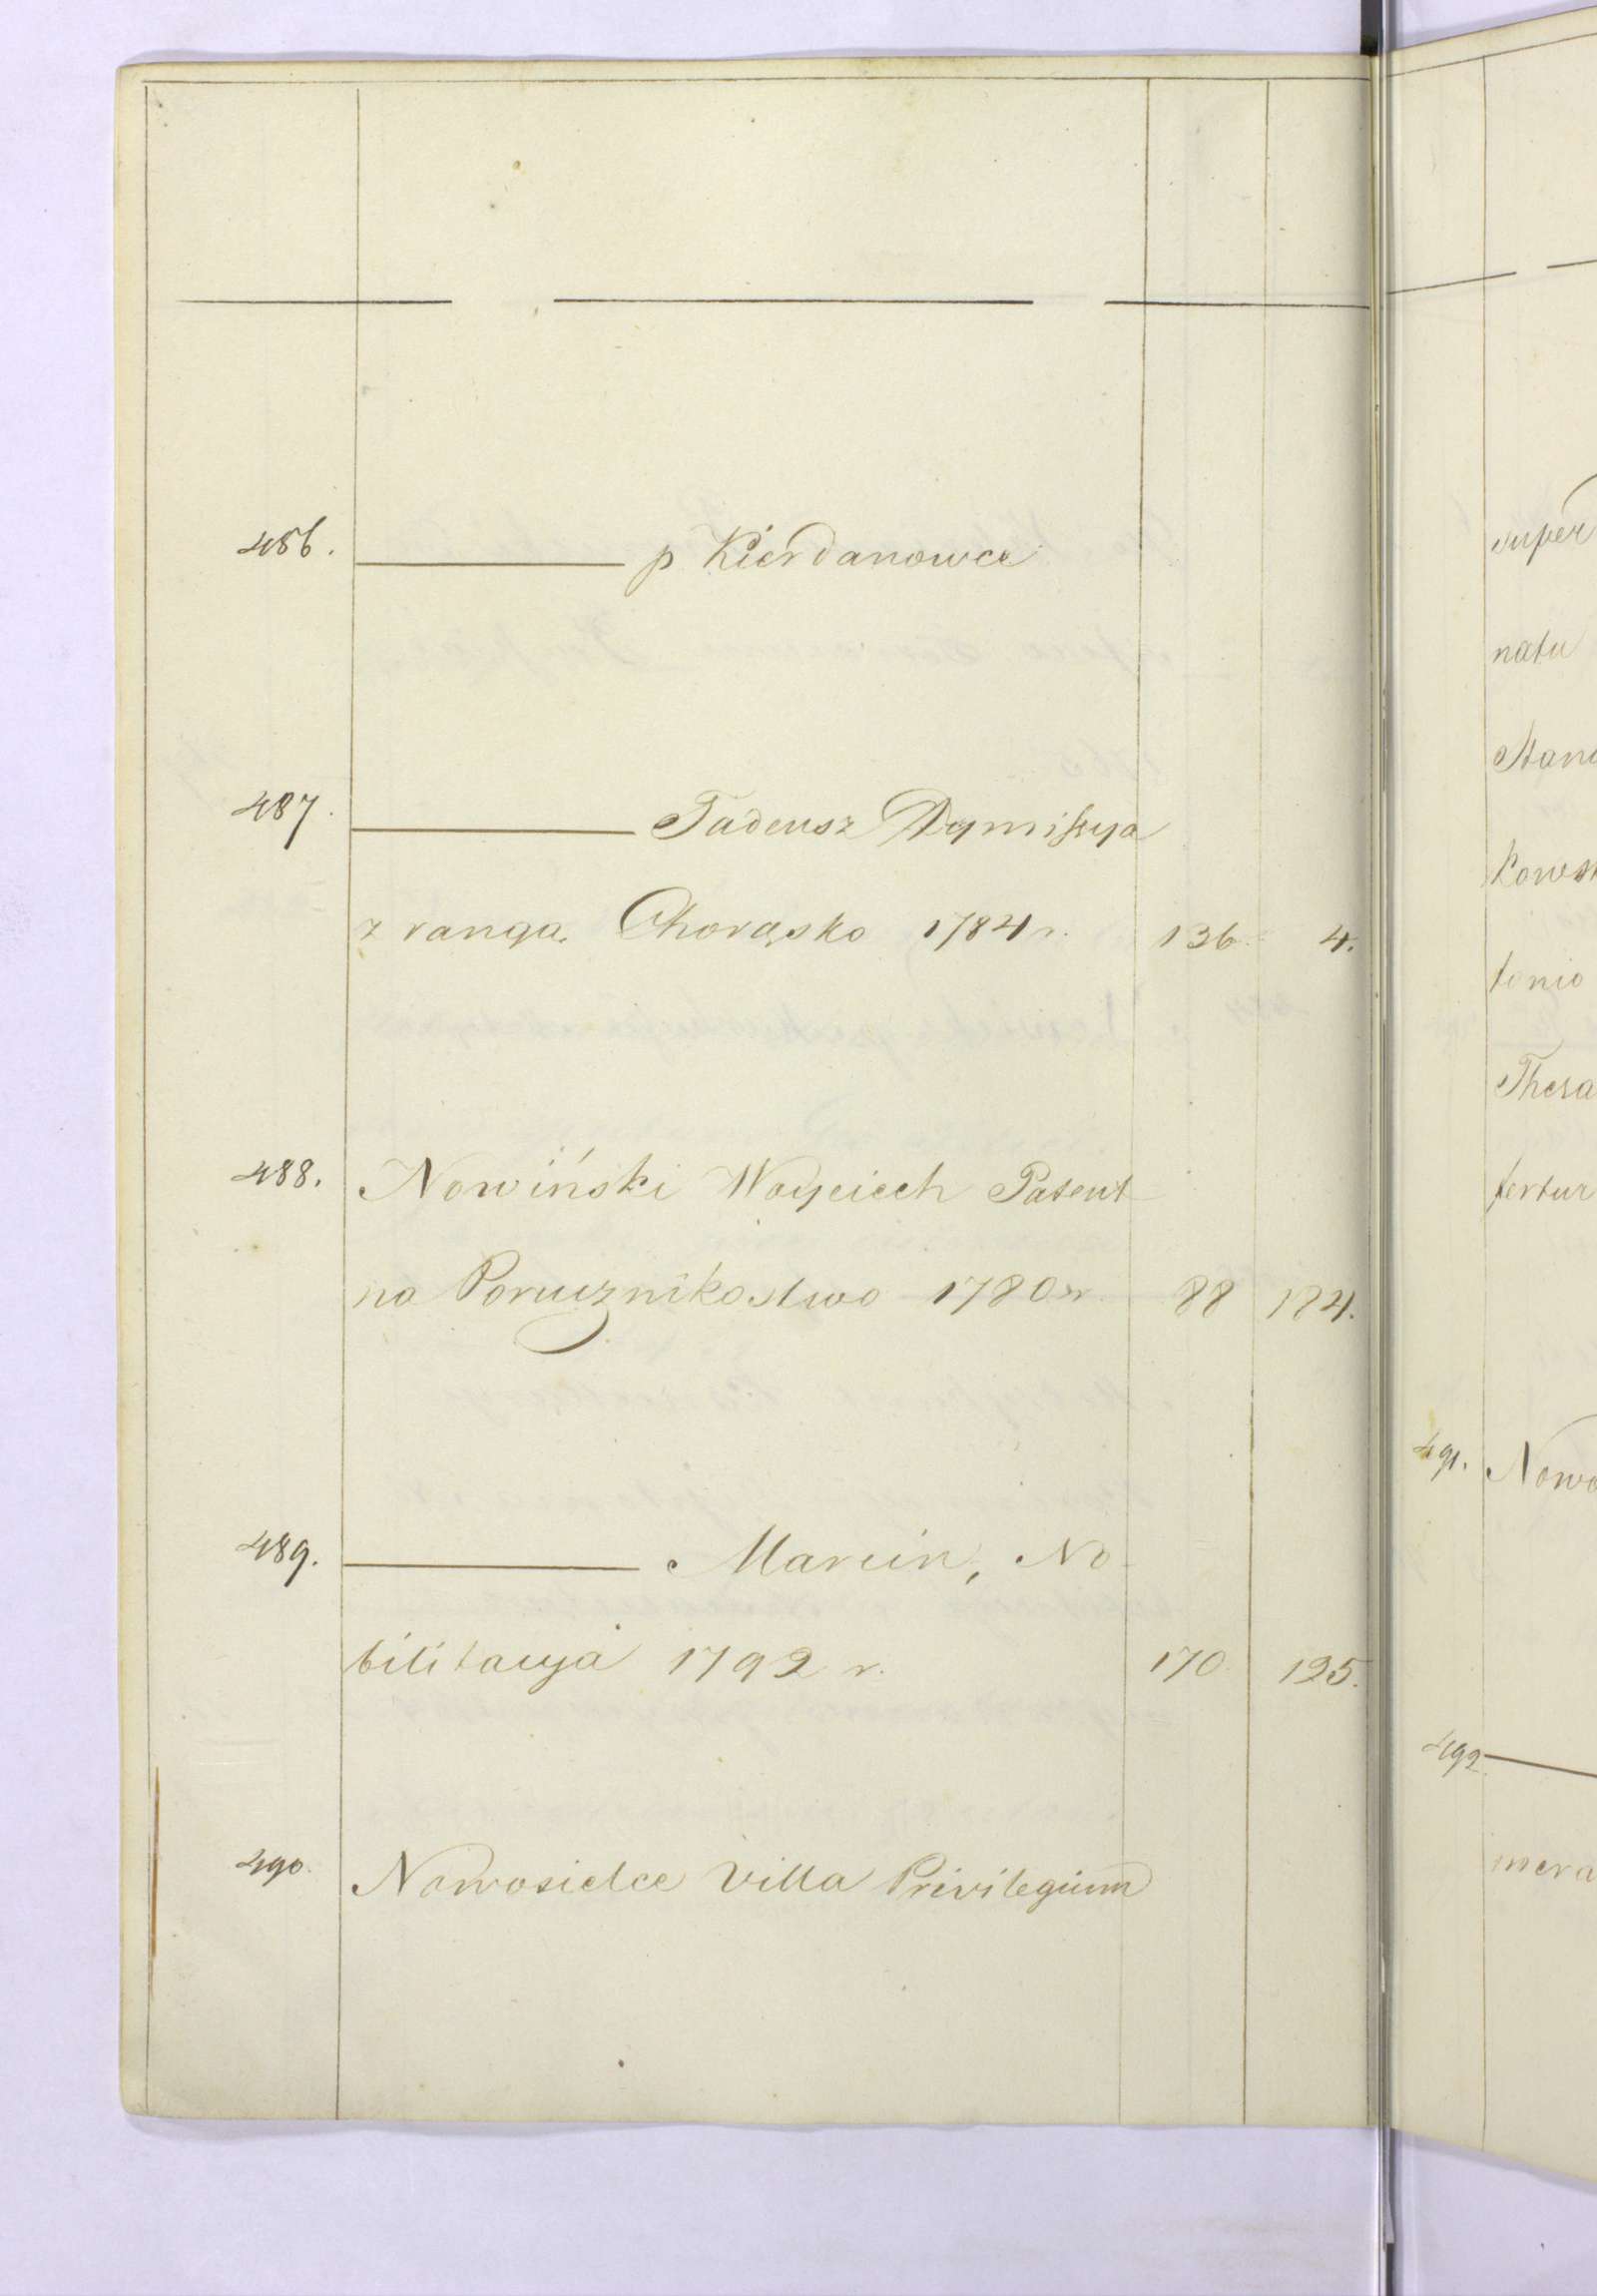 486. ——— p Kierdanowce
487. ——— Tadeusz Dymissya
z rangą Chorąsko 1784 r. 136. 4.
488. Nowiński Woyciech Patent
na Porucznikostwo 1780 r 88 184.
489. ——— Marcin, No-
bilitacya 1792 r. 170. 125.
490. Nowosielce Villa Privilegium
super
natu
Stani
kows
tonio
Thesa
fertur
491. Nowo
492 ———
mera